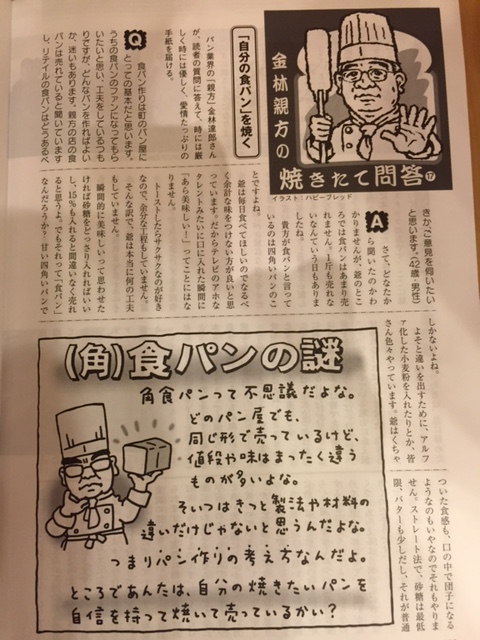 金林親方の
焼きたて問答⑰
イラスト:ハピーブレッド
「自分の食パン」を焼く
パン業界の「親方」金林達郎さん
が、読者の質問に答えて、時には厳
しく時には優しく、愛情たっぷりの
手紙を届ける。
Q
食パン作りは町のパン屋に
とっての基本だと思います。
うちの食パンのファンになってもら
いたいと思い、工夫をしているつも
りですが、どんなパンを作ればよい
か、迷いもあります。親方の店の食
パンは売れていると聞いています
し、リテイルの食パンはどうあるべ
きかご意見を伺いたい
と思います。(42歳・男性)
A
さて、どなたか
ら聞いたのかわ
かりませんが、爺のとこ
ろでは食パンはあまり売
れません。1斤も売れな
いなんていう日もありま
したね。
貴方が食パンと言って
いるのは四角いパンのこ
とですよね。
爺は毎日食べてほしいのでなるべ
く余計な味をつけない方が良いと思
っています。だからテレビのアホな
タレントみたいに口に入れた瞬間に
「あら美味しい!」ってことにはな
りません。
トーストしたらサクサクなのが好き
なので、余分な工程もしていません。
そんな訳で、爺は本当に何の工夫
もしていません。
瞬間的に美味しいって思わせた
ければ砂糖をどっさり入れればいい
し、15%も入れると間違いなく売れ
ると思うよ。でもそれって「食パン」
なんだろうか?甘い四角いパンで
しかないよね。
よそと違いを出すために、アルフ
ァ化した小麦粉を入れたりとか、皆
さん色々やっています。爺はくちゃ
ついた食感も、口の中で団子になる
ようなのもいやなのでそれもやりま
せん。ストレート法で、砂糖は最低
限、バターも少しだし、それが普通
(角)食パンの謎
角食パンって不思議だよな。
どのパン屋でも、
同じ形で売っているけど、
値段や味はまったく違う
ものが多いよな。
そいつはきっと製法や材料の
違いだけじゃないと思うんだよな。
つまりパン作りの考え方なんだよ。
ところであんたは、自分の焼きたいパンを
自信を持って焼いて売っているかい?